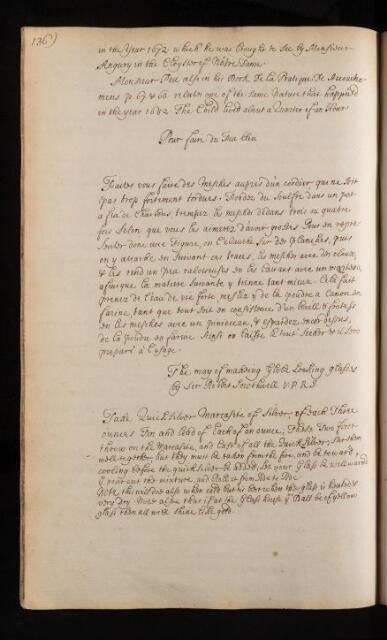 136)
in the Year 1672 which he was brought to see by Monsieur
in the Cloyster of Nôtre Dame.
Monsieur Peu also in his Book De la Pratique De Accouche-
mens p. 67 & 68 relates one of the same Nature that happened
in the year 1682 The Child lived about a Quarter of an Hour
Pour faire du Feu bleu
Faites vous faire des Mesches auprès d'un Cordier, qui ne soit
pas trop fortement tordues. Fondez du Soulfre dans un pot
a feu de Charbons, trempez les mesches dedans trois ou quatre
fois selon que vous les aimerez d'avoir grosses. Pour en repre-
senter donc une Figure, on sur des Planches, puis
on y attache en Suivant les traces, les mesches avec des cloux,
& les rend un peu raboteuses en les avec un marteau,
afin que la matiere suivante y tienne tant mieux. Cela fait
prenez de l'eau de vie forte meslez y de la poudre a Canon en
farine, tant que tout soit en consistence d'un
en les mesches avec un pinceau, & espardez encor dessus,
de la poudre en farine Ainsi on laisse le tout Secher & il sera
preparé a l'usage
The way of making Globe Looking glasses
by Ser Robert Southwell V.P.R.S.
Take Quicksilver Marcasite of Silver, of each Three
ounces Tin and lead of each half an ounce; These Two first
throw on the Marcasite, and last of all the Quick Silver, Stir them
well together, but they must be taken from the fire, and be toward
cooling before the quick silver be added, let your Glass be well warm'd
& pour out the mixture and Roll it from Side to Side
Note this will doe also when cold but tis best when the glass is heated &
very dry Note also that if at the Glass house & Ball be of yellow
glass then all will Shine like gold.